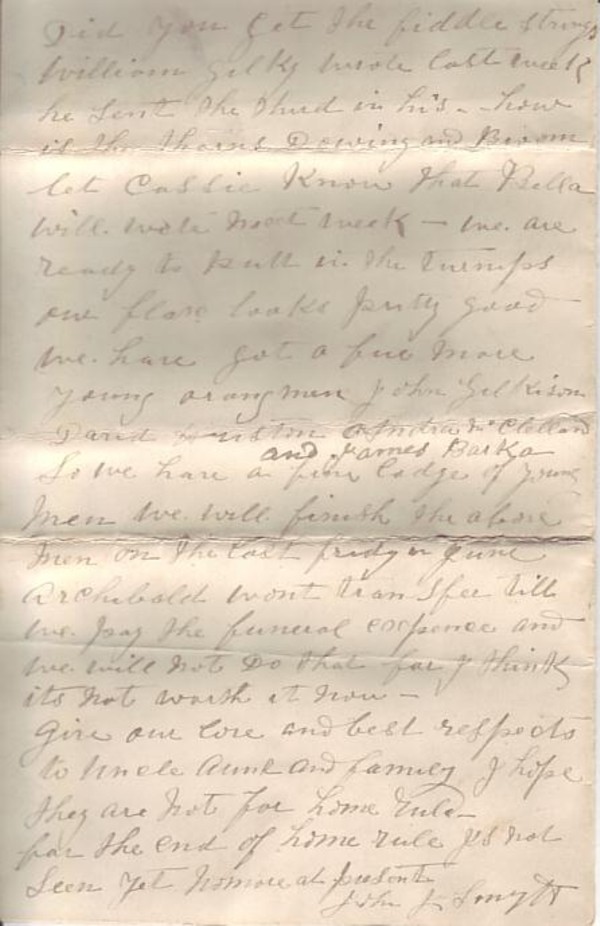 Did you get the fiddle strings
William Gilky wrote last week
he sent the third in his - how
is the thorns Dowing and Broom
let Cassie Know that Bella
will wote next week - we are
ready to putt in the turnips
our flax looks pritty good
we have got a few more
young orangmen John Gilkison
David Huston Andra McClelland
and James Barka
So we have a fine lodge of young
Men we will finish the above
Men on the last fridy in June
Archibald wont transfer till
we pay the funeral expence and
we will not Do that for I think
its not worth it now -
Give our love and best respects
to Uncle Aunt and family I hope
they are not for home rule
for the end of home rule is not
Seen yet nomore at present
John J Smyth